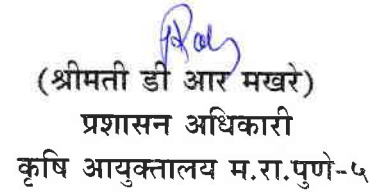 (श्रीमती डी आर मखरे)
प्रशासन अधिकारी
कृषि आयुक्तालय म.रा.पुणे-५